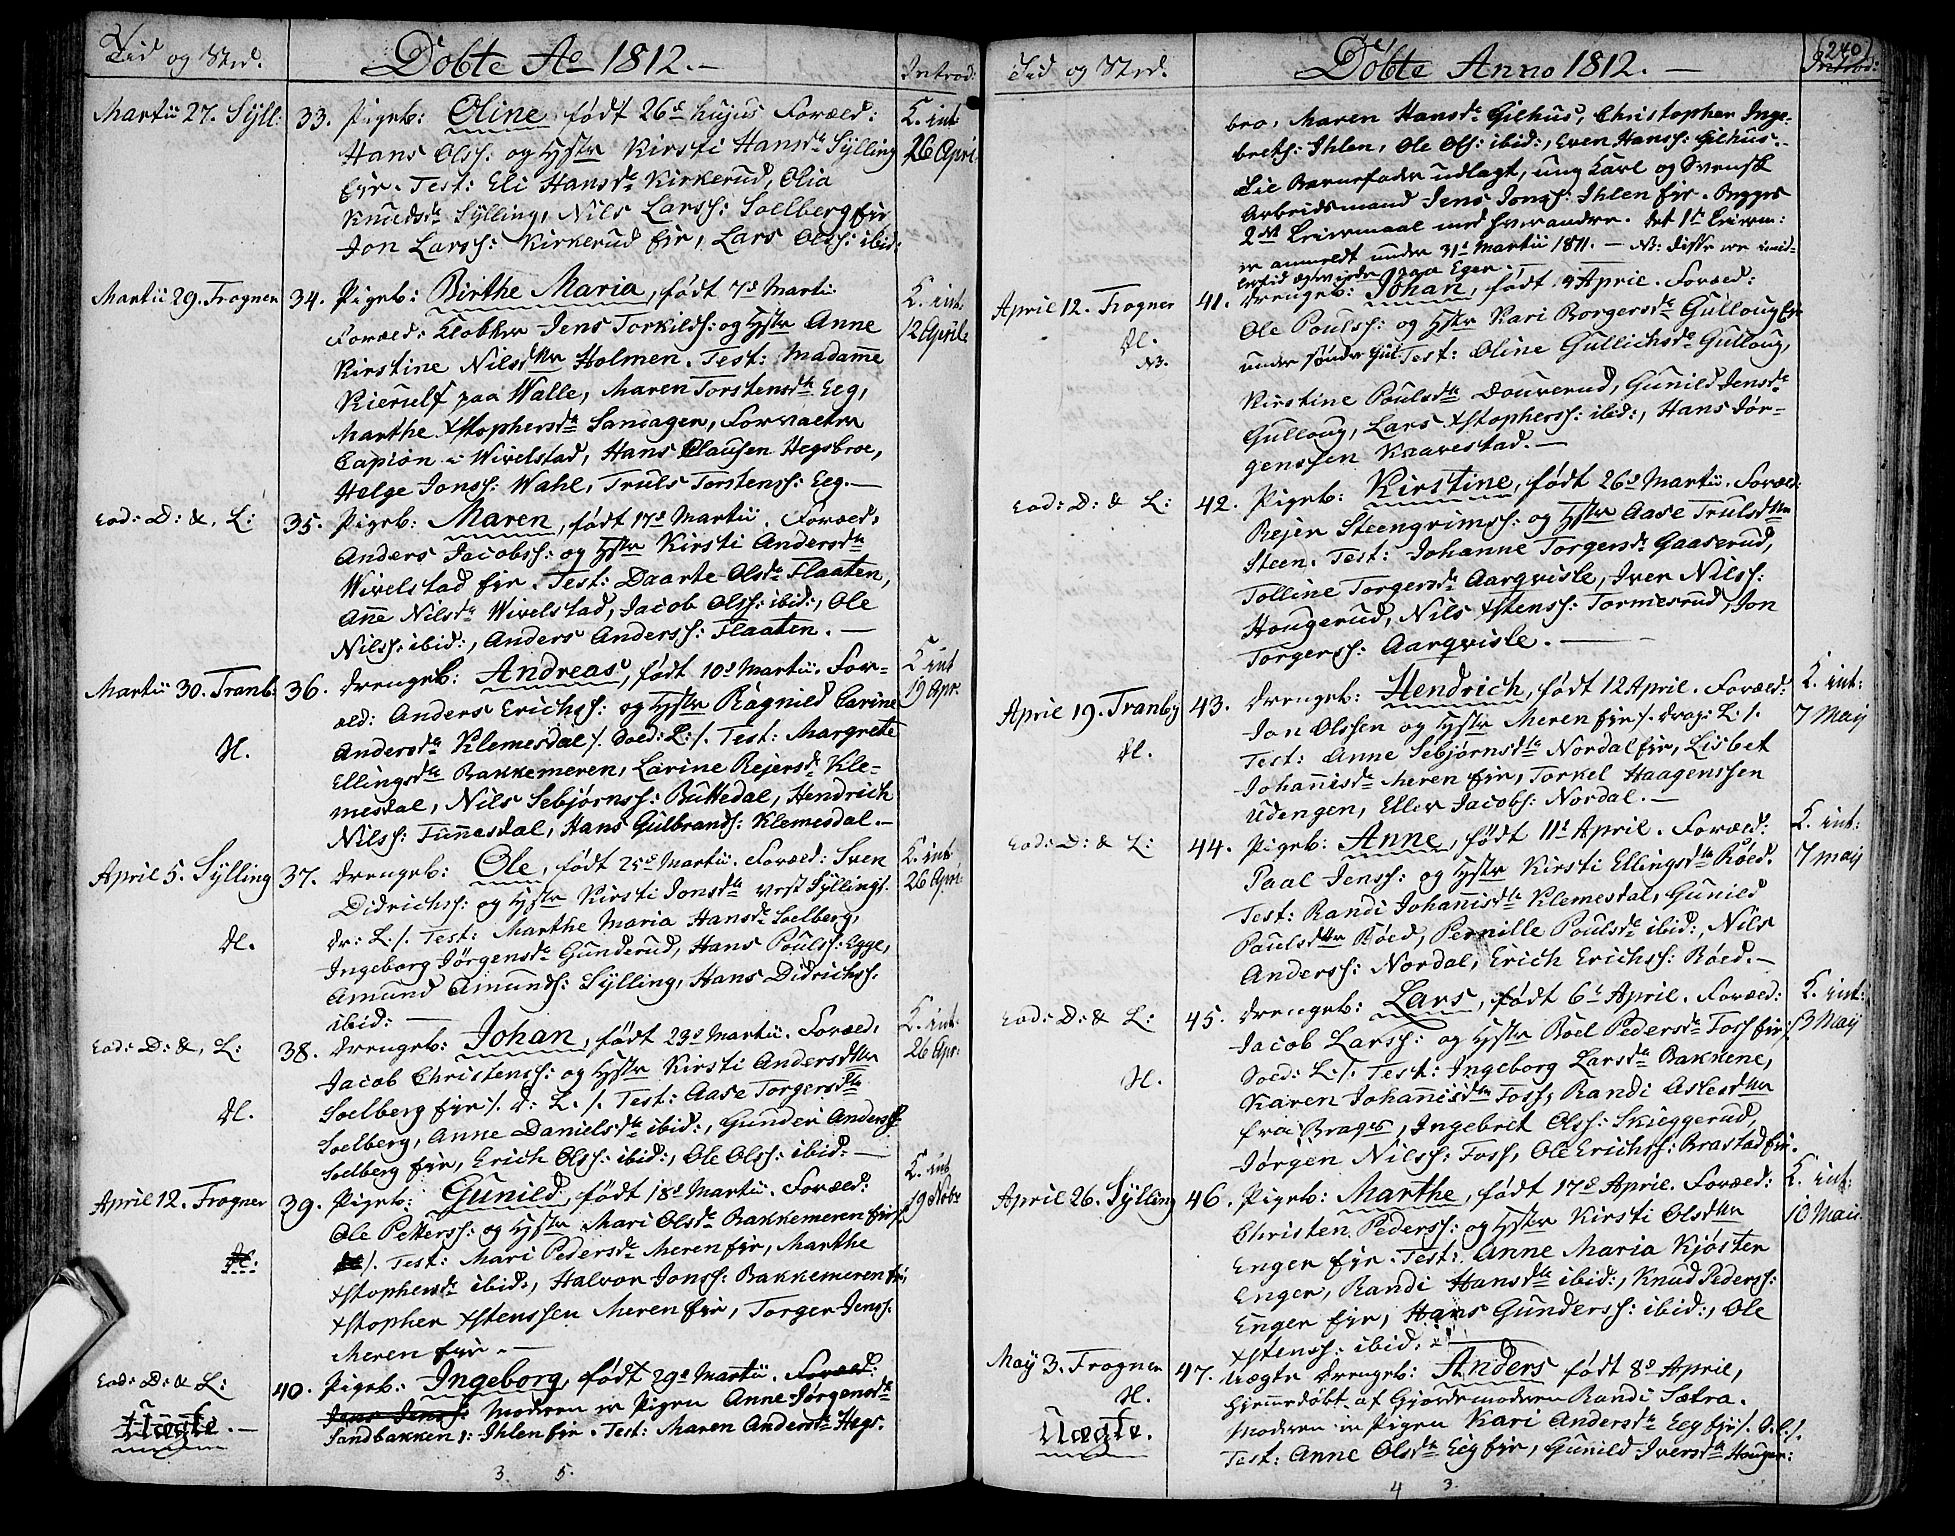 Tid og Sted.
Döbte Ao 1812.
Introd:
Martii 27. Sÿll:
33. Pigeb: Oline, født 26de hujus Foræld:
Hans Olss: og Hstr Kirsti Hansdtr Sÿlling
Eir. Test: Eli Hansdtr Kirkerud, Olia
Knudsdtr Sÿlling, Nils Larss: Soelberg eir
Jon Larss: Kirkerud eir, Lars Olss: ibid:
K. int
26 Apri
Martii 29. Frogner
34. Pigeb: Birthe Maria, født 7de Marti
Foræld: Klokker Jens Torkilds: og Hstr Anne
Kirstine Nilsdttr Holmen. Test: Madame
Kierulf paa Walle, Maren Torstensdtr Eeg,
Marthe Xstophersdtr Samsagen, Forvalter
Capion i Wivelstad, Hans Clausen Hegsbroe,
Helge Jonss: Wahl, Truls Torstenss: Eeg.
K. int
12 Aprile
Eod: D: &, L:
35. Pigeb: Maren, født 17de Martii. Foræld:
Anders Jacobss: og Hstr Kirsti Andersdtr
Wivelstad Eir. Test: Daarte Olsdtr Flaaten,
Anne Nilsdtr Wivelstad, Jacob Olss: ibid:, Ole
Nilss: ibid:, Anders Anderss: Flaaten.
Martii 30. Tranb:
H.
36. Drengeb: Andreas, født 10de Martii. For-
æld: Anders Erichss: og Hstr Ragnild Carine
Andersdtr Klemesdal /. Soed: L: /. Test: Margrete
Ellingsdtr Bakkemeren, Larine Rejersdtr Kle-
mesdal, Nils Sebjørnss: Buttedal, Hendrich
Nilss: Tunnesdal, Hans Gulbrands: Klemesdal.
K int
19 Apr:
April 5. Sÿlling
H.
37. Drengeb: Ole, født 25de Martii. Foræld: Sven
Didrichss: og Hstr Kirsti Jonsdtr vest Sÿlling /.
dr: L: /. Test: Marthe Maria Hansdtr Soelberg,
Ingeborg Jørgensdtr Gunderud, Hans Poulss: Egge,
Amund Amunds: Sÿlling, Hans Didrichss:
ibid:
K. int
26 Apri
Eod: D: &, L:
H.
38. Drengeb: Johan, født 23de Martii. Foræld:
Jacob Christenss: og Hstr Kirsti Andersdttr
Soelberg eir /. D: L. /. Test: Aase Torgersdtr
Soelberg, Anne Danielsdtr ibid:, Gunder Anderss:
Solberg eir, Erich Olss: ibid:, Ole Olss: ibid:
K. int.
26 Apr:
April 12. Frogner
H:
39. Pigeb: Gunild, født 18de Martii. Foræld:
Ole Petterss: og Hstr Mari Olsdtr Bakkemeren eir /.
/. Test: Mari Pedersdtr Meren eir, Marthe
Xstophersdtr ibid:, Halvor Jonss: Bakkemeren eir,
Xstopher Xstenssen Meren eir, Torger Jenss:
Meren eir.
K. int
19 Nobr
Eod: D: & L:
Uægte.
40. Pigeb: Ingeborg, født 29de Martii. Foræld:
Jens Jenss: Moderen er Pigen Anne Jørgensdtr
Sandbakken s: Ihlen eir. Test: Maren Andersdtr Hegs-
3. 5.
Tid og Sted.
Döbte Anno 1812.
(240)
Introd:
bro, Maren Hansdtr Gilhus, Christopher Inge-
breths: Ihlen, Ole Ols: ibid:, Even Hanss: Gilhus.
Til Barnefader udlagt, ung Karl og Svensk
Arbeidsmand Jens Jonss: Ihlen eir. Begges
2det Leiermaal med hverandre. Det 1ste Leierm:
er anmeldt under 31te Martii 1811. NB: disse ere imid-
lertid ægteviede paa Eger.
April 12. Frogner
H.
NB.
41. Drengeb: Johan, født 4 April. Foræld:
Ole Poulss: og Hstr Kari Borgersdtr Gulloug Eir
under Sønder Gul. Test: Oline Gullichsdtr Gulloug,
Kirstine Poulsdtr Douverud, Gunild Jensdtr
Gulloug, Lars Xstopherss: ibid:, Hans Jør-
genssen Kaarestad.
Eod: D: & L:
42. Pigeb: Kirstine, født 26de Martii. Foræld:
Rejer Steengrimss: og Hstr Aase Trulsdttr
Steen. Test: Johanne Torgersdtr Gaaserud,
Tolline Torgersdtr Aarqvisle, Iver Nilss:
Hougerud, Nils Xstenss: Tormesrud, Jon
Torgerss: Aarqvisle.
April 19. Tranby
H.
43. Drengeb: Hendrich, født 12 April. Foræld:
Jon Olssen og Hstr Meren eir /. Drag: L: /.
Test: Anne Sebjørnsdtr Nordal eir, Lisbet
Johannisdtr Meren eir, Torkel Haagenssen
Udengen, Eller Jacobs: Nordal.
K. int:
7 May
Eod: D: & L:
44. Pigeb: Anne, født 11te April. Foræld:
Paal Jenss: og Hstr Kirsti Ellingsdtr Röed.
Test: Randi Johannisdtr Klemesdal, Gunild
Paulsdttr Röed, Pernille Poulsdtr ibid:, Nils
Anderss: Nordal, Erich Erichss: Röed.
K. int:
7 may
Eod: D: & L:
H.
45. Drengeb: Lars, født 6te April. Foræld:
Jacob Larss: og Hstr Boel Pedersdtr Foss eir /.
Soed: L: /. Test: Ingeborg Larsdtr Bakkene,
Karen Johannisdtr Foss, Randi Aslesdttr
fra Bragn, Ingebret Olss: Skieggerud,
Jørgen Nilss: Foss, Ole Erichss: Brastad eir.
K. int:
3 May
April 26. Sÿlling
46. Pigeb: Marthe, født 17de April. Foræld:
Christen Pederss: og Hstr Kirsti Olsdttr
Enger eir. Test: Anne Maria Kjösten
Enger, Randi Hansdtr ibid:, Knud Pederss:
Enger eir, Hans Gunderss: ibid:, Ole
Xstenss: ibid:
K. int:
10 Maii
May 3. Frogner
H.
Uægte.
47. Uægte Drengeb: Anders født 8de April,
hjemmedøbt af Gjordemoderen Randi Sætra.
Moderen er Pigen Kari Andersdtr Eeg eir /. S. L: /.
Test: Anne Olsdtr Eeg eir, Gunild Iversdtr Houger:
4 3.